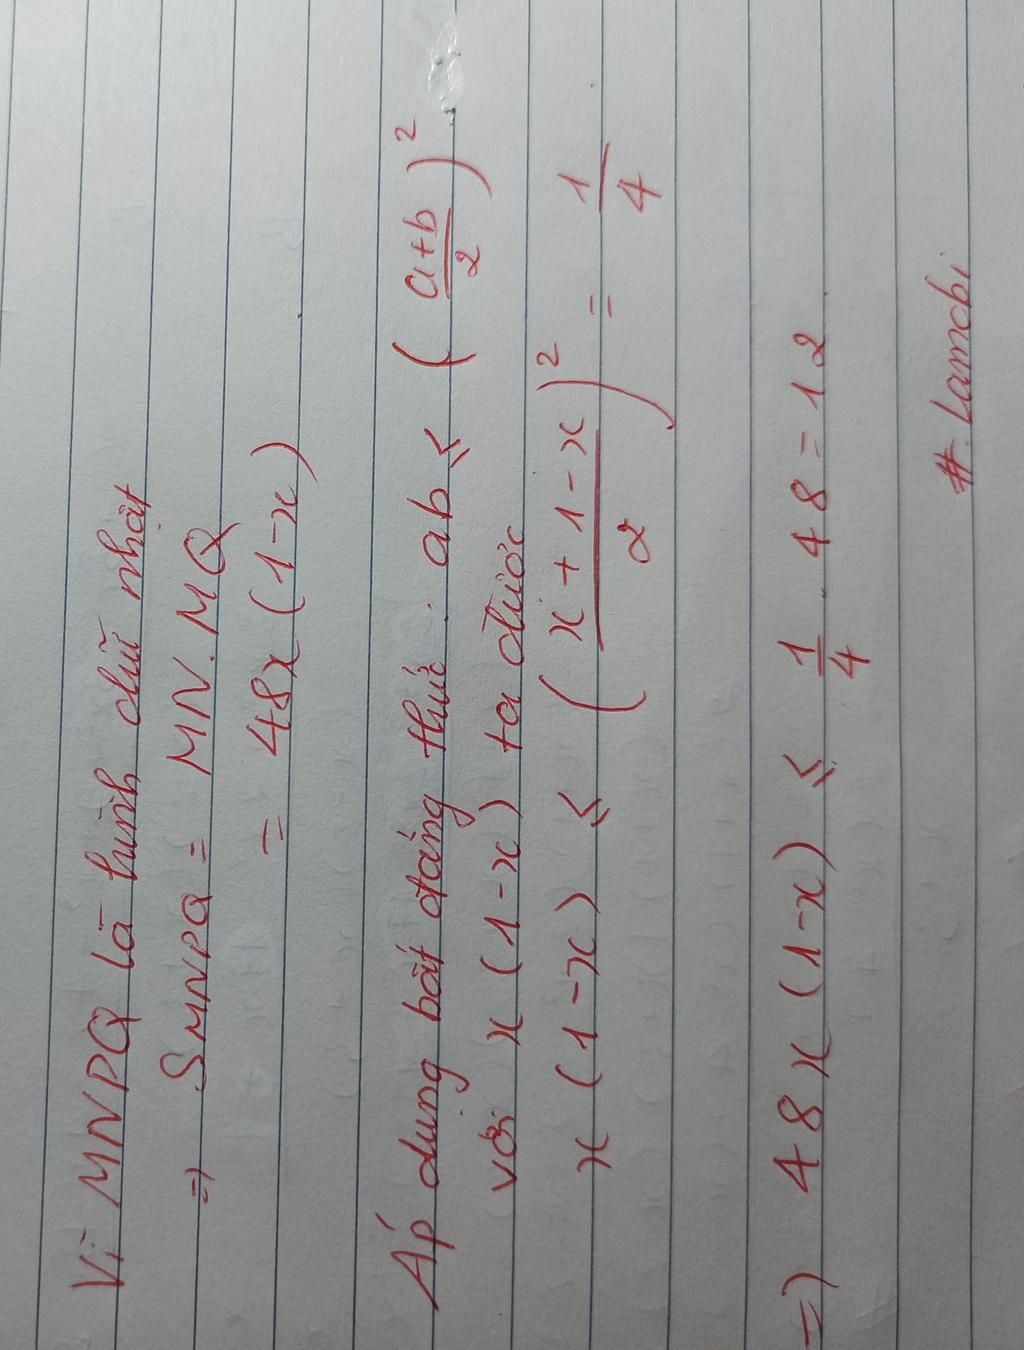 Vì MNPQ là hình chữ nhật
=> SMNPQ = MN.MQ
= 48x(1-x)
Áp dụng bất đẳng thức. ab ≤ ((a+b)/2)²
với x(1-x) ta được
x(1-x) ≤ ((x+1-x)/2)² = 1/4
=> 48x(1-x) ≤ 1/4 . 48 = 12
#. Lamchi